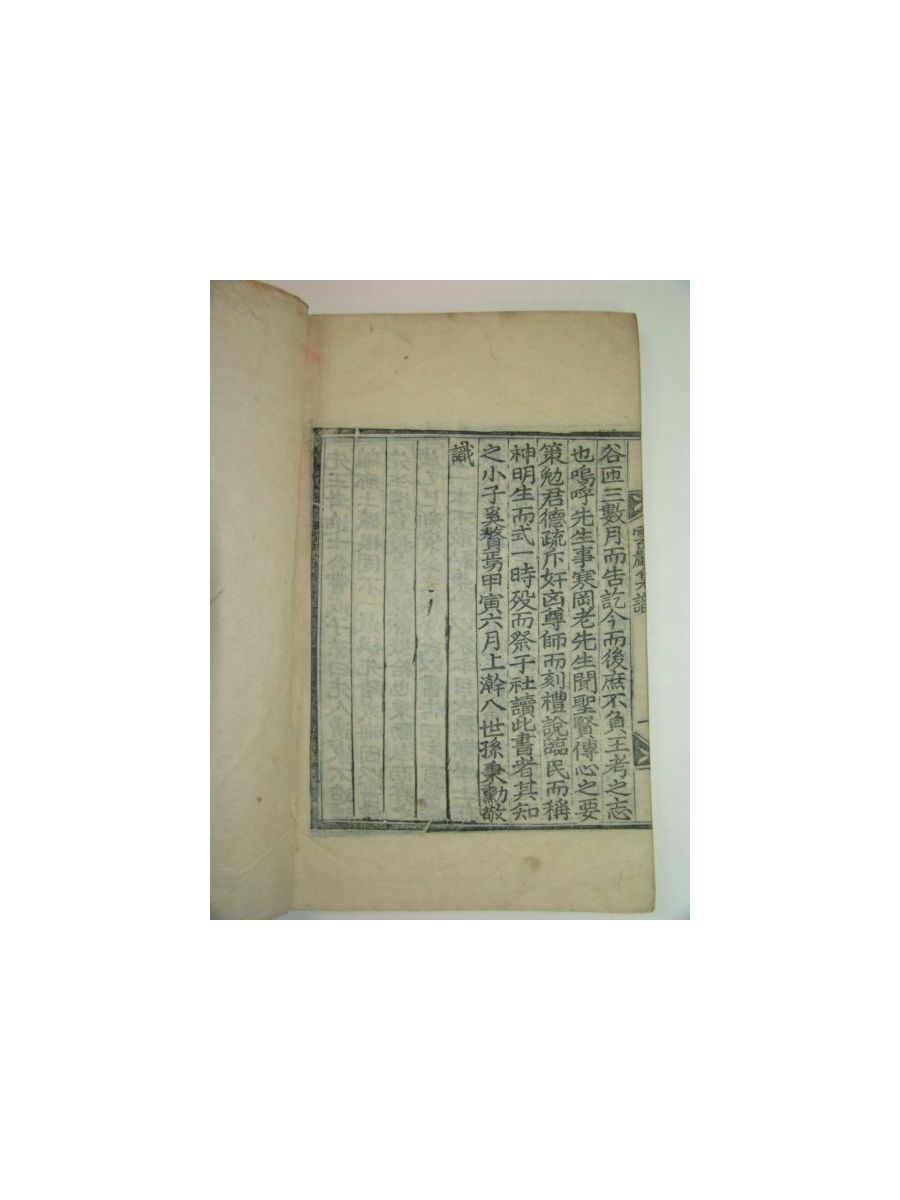 谷匝三數月而告訖今而後庶不負王考之志
也嗚呼先生事寒岡老先生聞聖賢傳心之要
策勉君德疏斥奸凶尊師而刻禮說臨民而稱
神明生而式一時歿而祭于社讀此書者其知
之小子奚贅焉甲寅六月上澣八世孫秉勳敬
識
雲巖集